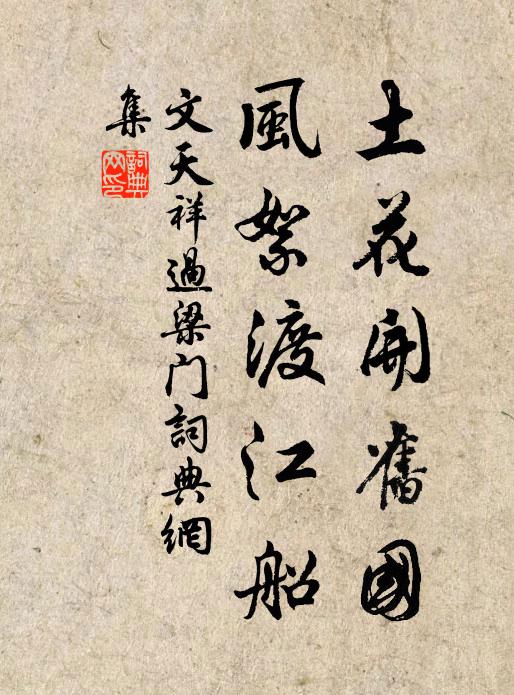 土花開舊國
風絮渡江船
文天祥過梁門詞典網
集
詞典網印